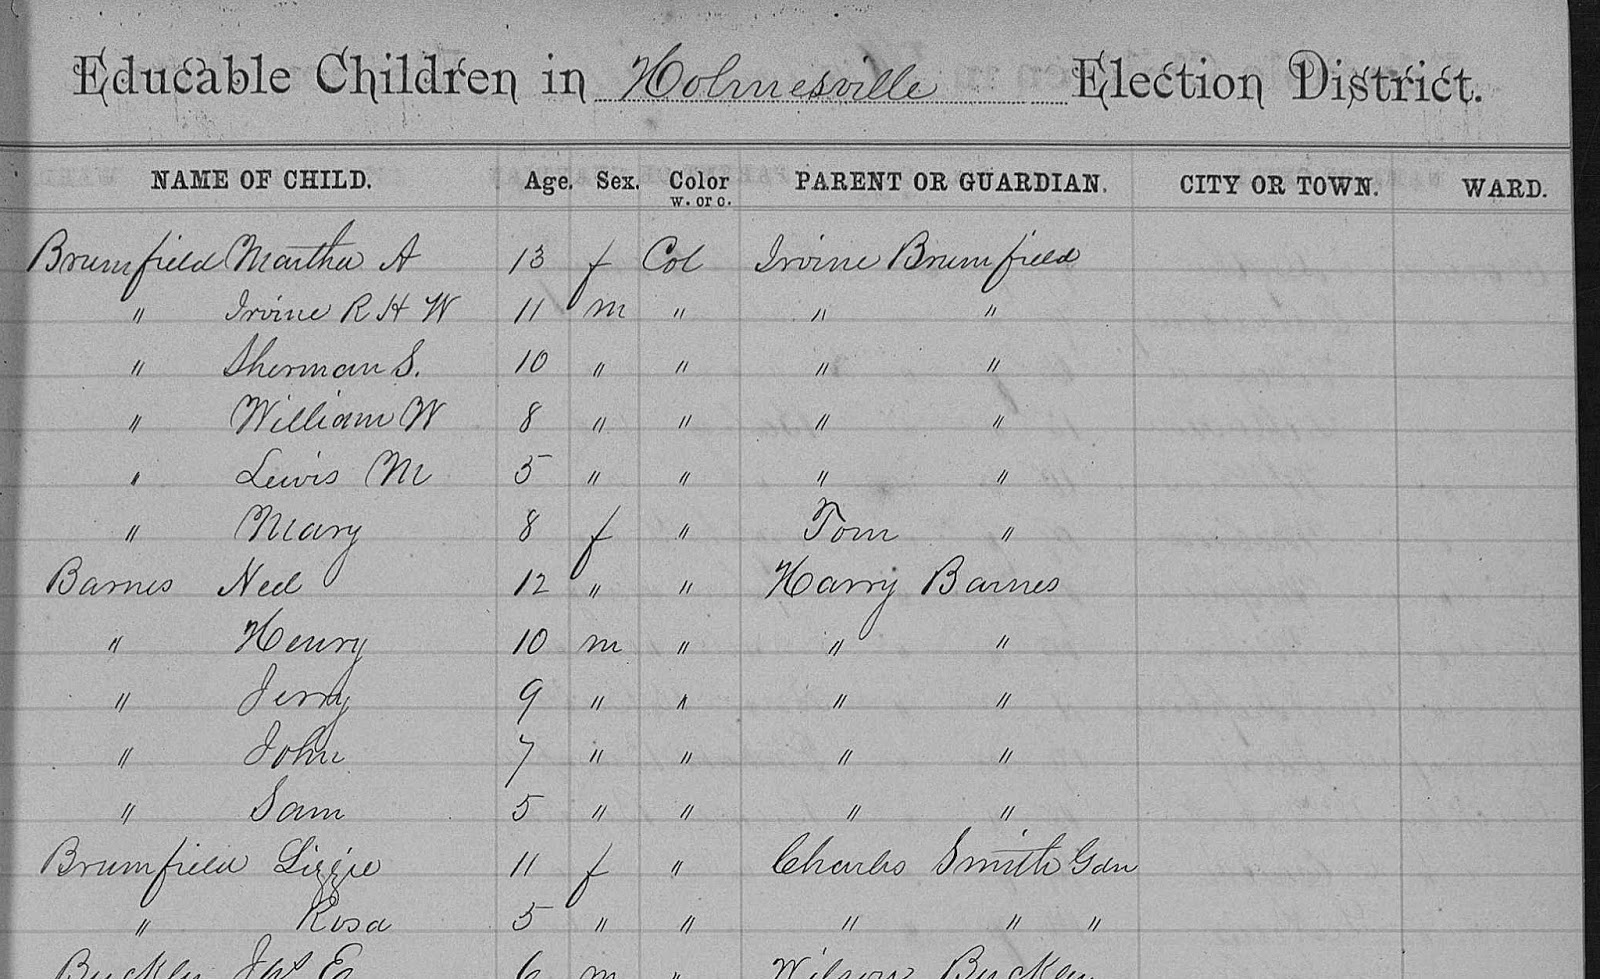 Educable Children in Holmesville Election District.
NAME OF CHILD. Age. Sex. Color w. or c. PARENT OR GUARDIAN. CITY OR TOWN. WARD.
Brumfield Martha A 13 f Col Irvine Brumfield
" Irvine R H W 11 m " " "
" Sherman S. 10 " " " "
" William W 8 " " " "
" Lewis M 5 " " " "
" Mary 8 f " Tom "
Barnes Ned 12 " " Harry Barnes
" Henry 10 m " " "
" Jerry 9 " " " "
" John 7 " " " "
" Sam 5 " " " "
Brumfield Lizzie 11 f " Charles Smith Gdn
" Rosa 5 " " " " "
Buckley Jas E 6 m " Wilson Buckley